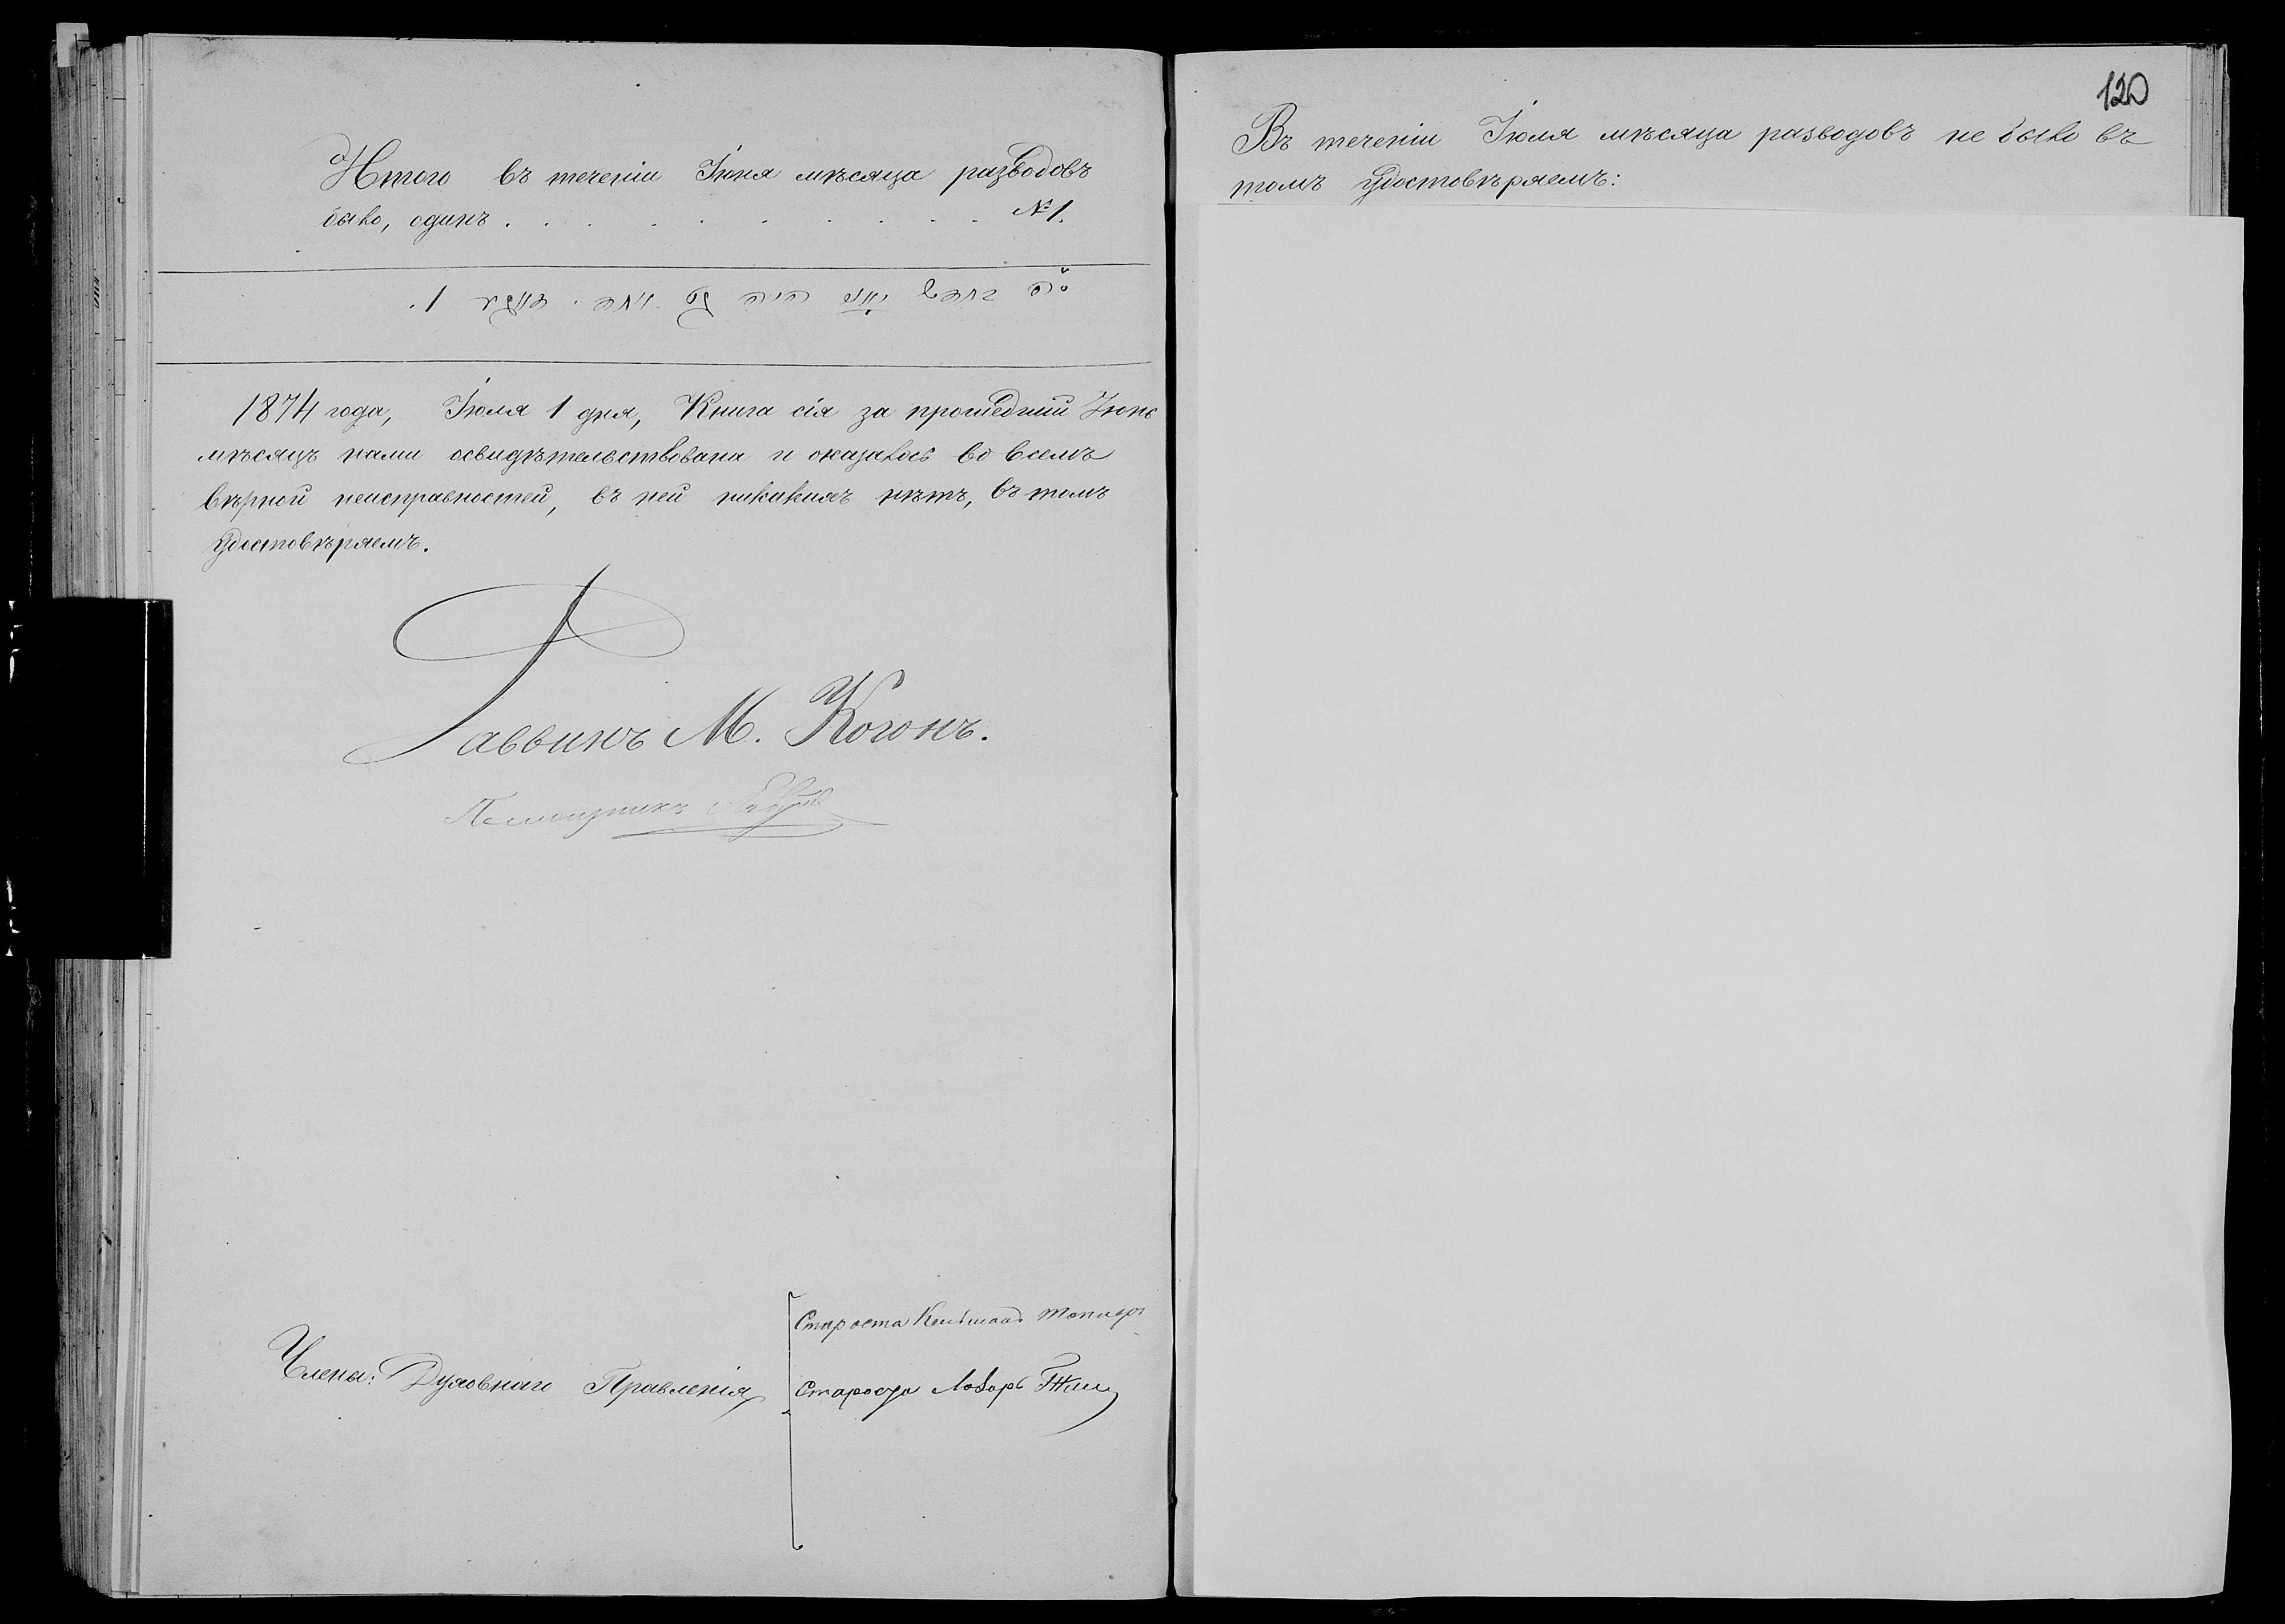 Итого въ теченіи Іюня мѣсяца разводовъ
было, одинъ . . . . . . . . . . № 1.
1874 года, Іюля 1 дня, Книга сія за прошедший Іюнь
мѣсяцъ нами освидѣтельствована и оказалось во всемъ
вѣрной неисправностей, въ ней никакихъ нѣтъ, въ томъ
удостовѣряемъ.
Раввинъ М. Когонъ.
Члены: Духовнаго Правленія
Староста
Староста
120
Въ теченіи Іюля мѣсяца разводовъ не было въ
томъ удостовѣряемъ: